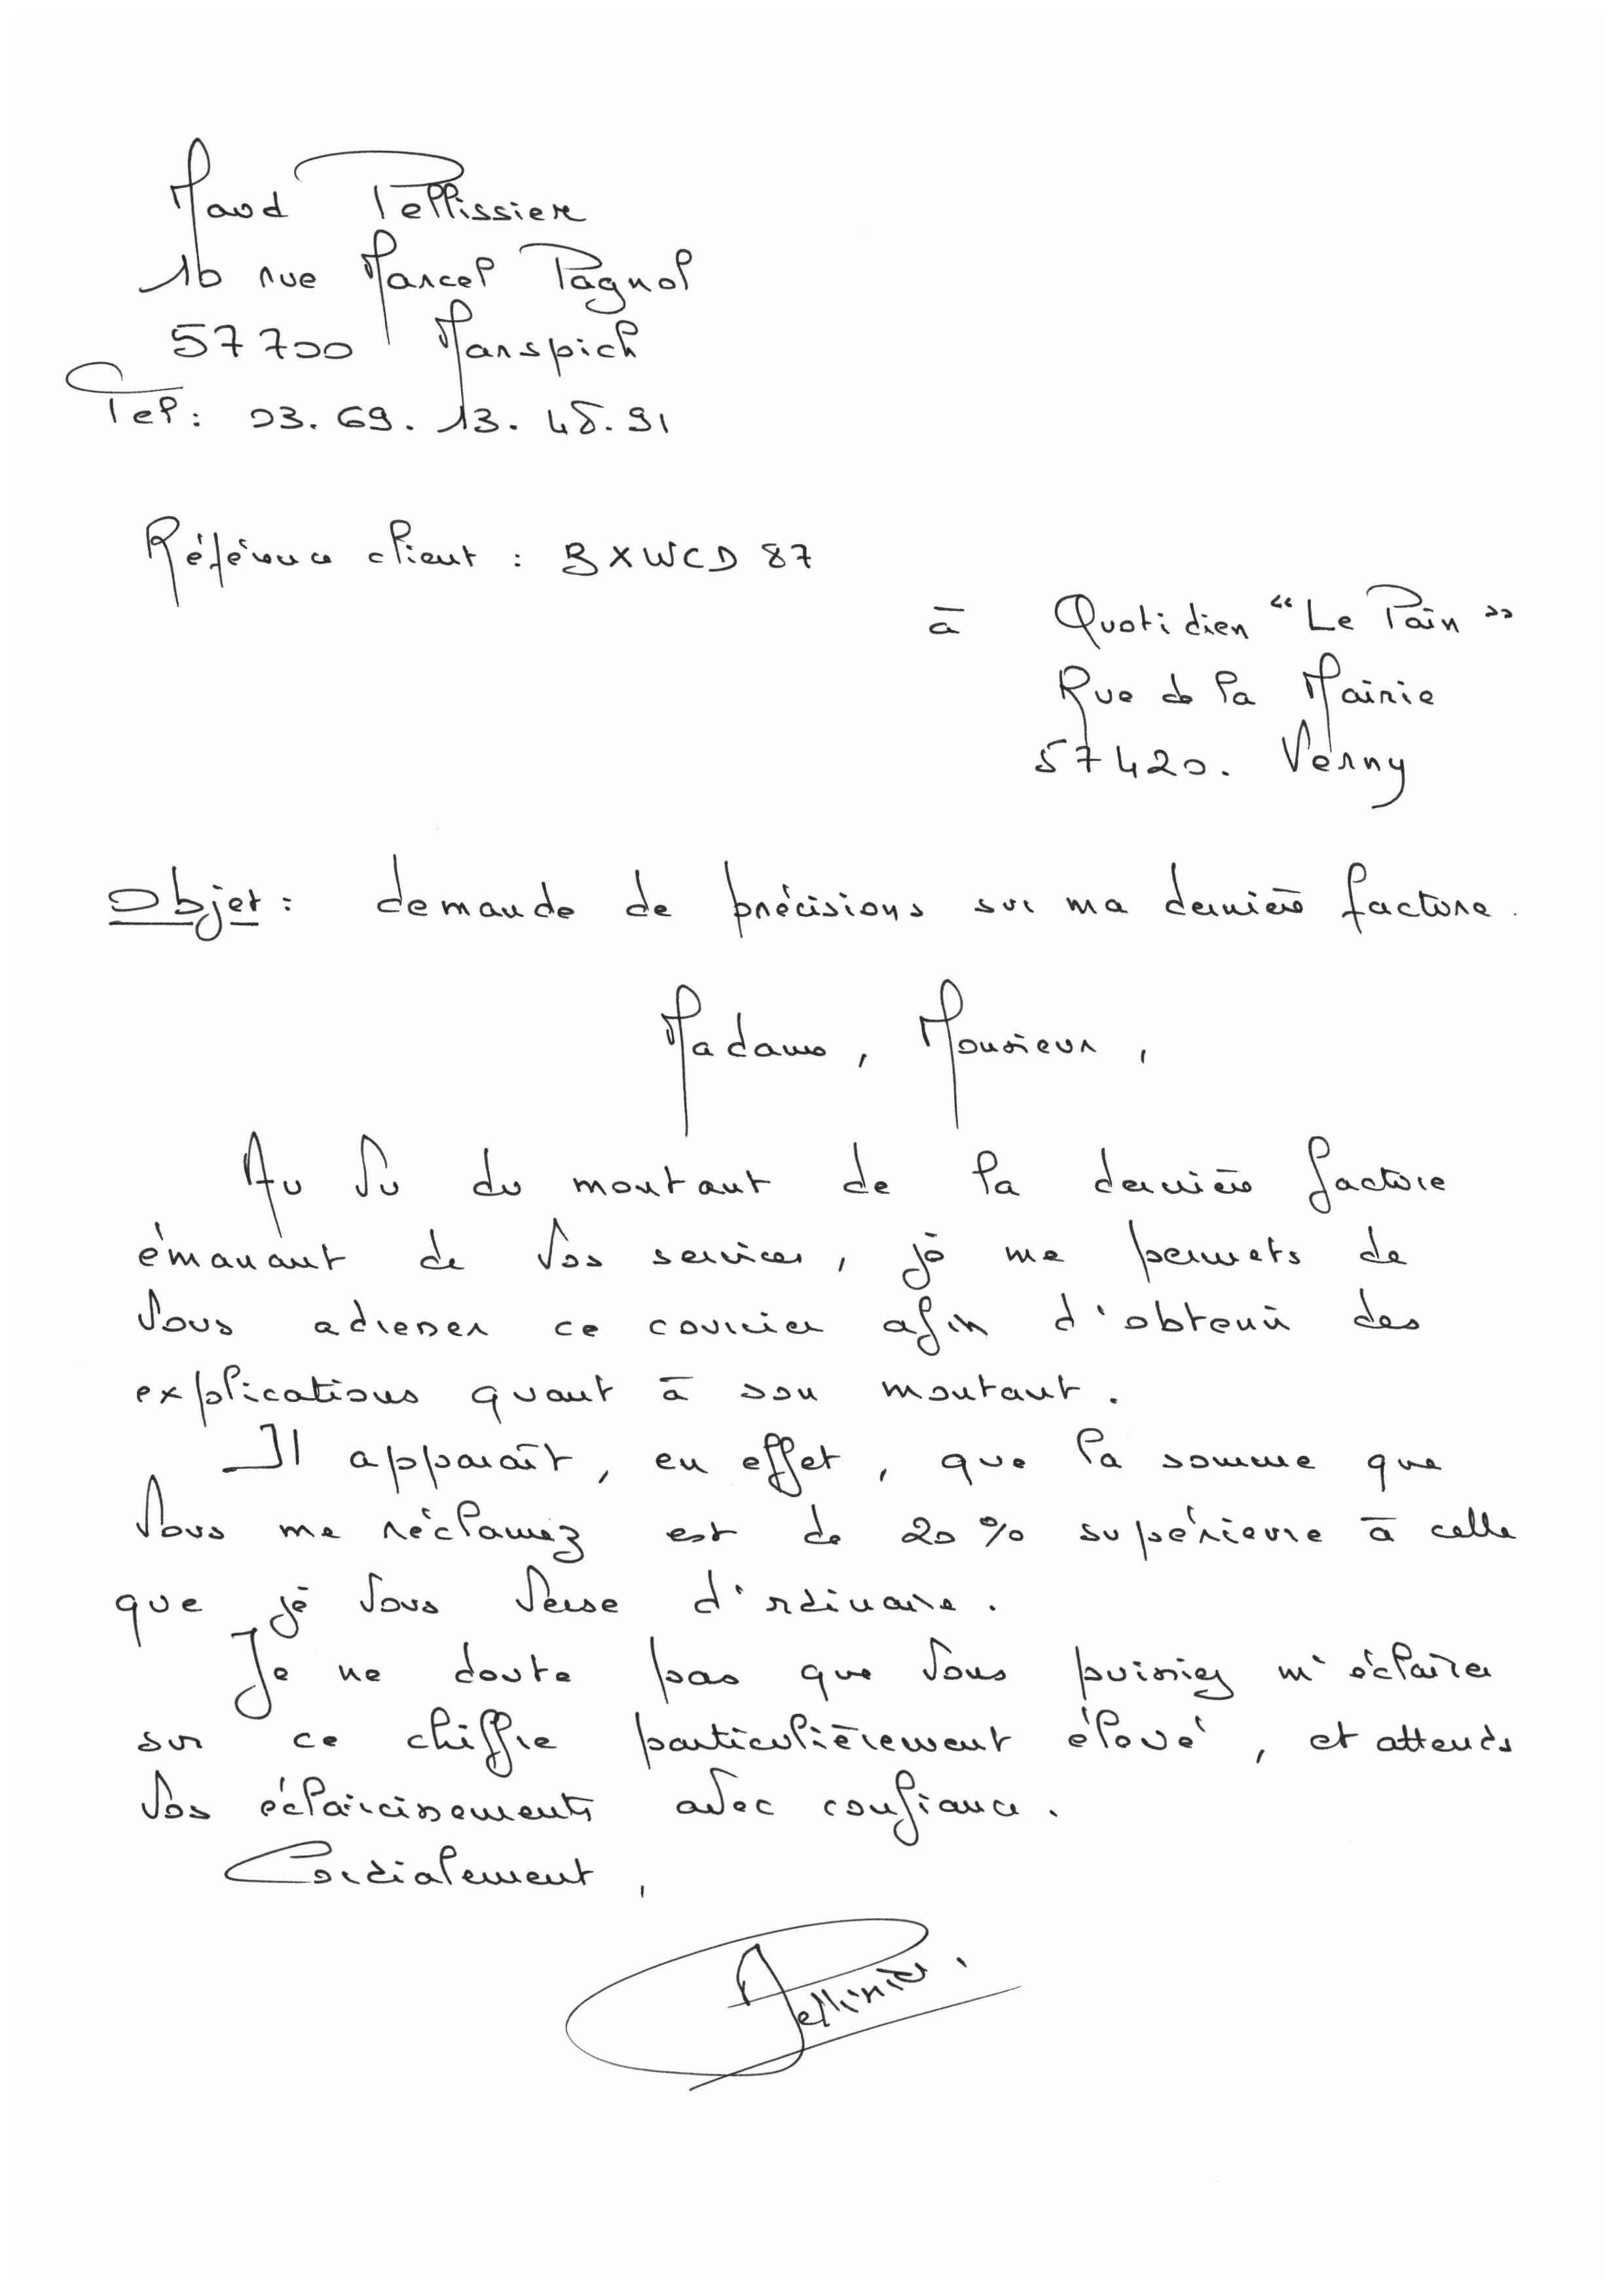 Maud Pellissier
16 rue Marcel Pagnol
57700 Marspich
Tel: 03.69.13.48.91
Référence client : BXWCD 87
à Quotidien "Le Pain"
Rue de la Mairie
57420. Verny
Objet : demande de précisions sur ma dernière facture.
Madame, Monsieur,
Au vu du montant de la dernière facture
émanant de vos services, je me permets de
vous adresser ce courrier afin d'obtenir des
explications quant à son montant.
Il apparaît, en effet, que la somme que
vous me réclamez est de 20% supérieure à celle
que je vous verse d'ordinaire.
Je ne doute pas que vous puissiez m'éclairer
sur ce chiffre particulièrement élevé, et attends
vos éclaircissements avec confiance.
Cordialement,
Pellissier.